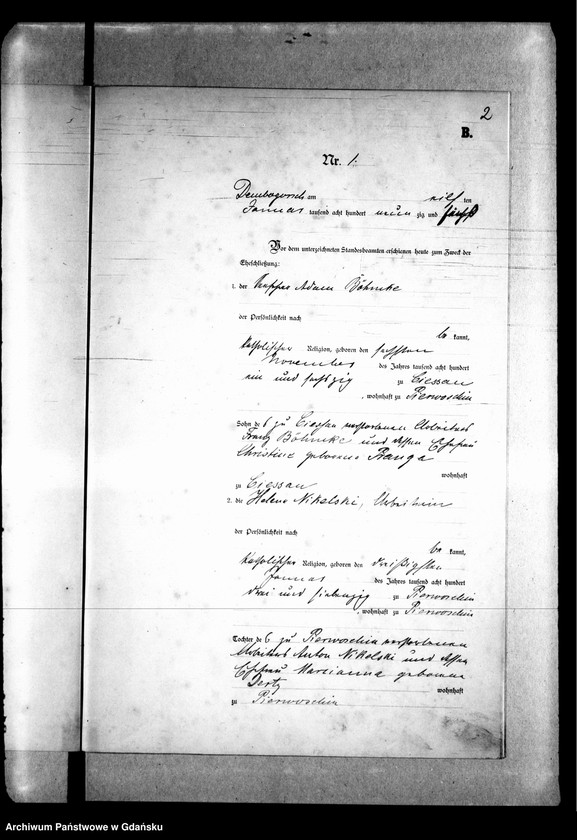 2
B.
Nr. 1.
Dembogorsch am eilf ten
Januar tausend acht hundert neun zig und fünf
Vor dem unterzeichneten Standesbeamten erschienen heute zum Zweck der
Eheschließung:
1. der Adam Böhnke
der Persönlichkeit nach
be kannt,
katholischer Religion, geboren den sechsten
November des Jahres tausend acht hundert
ein und sechszig zu Ciessau
, wohnhaft zu Pierwoschin
Sohn des zu Ciessau verstorbenen Arbeiters
Franz Böhnke und dessen Ehefrau
Christine geborene Pranga
wohnhaft
zu Ciessau
2. die Helene Nikelski, Arbeiterin
der Persönlichkeit nach
be kannt,
katholischer Religion, geboren den dreißigsten
Januar des Jahres tausend acht hundert
drei und siebenzig zu Pierwoschin
, wohnhaft zu Pierwoschin
Tochter des zu Pierwoschin verstorbenen
Arbeiters Anton Nikelski und dessen
Ehefrau Marcianna geborene
wohnhaft
zu Pierwoschin
Archiwum Państwowe w Gdańsku